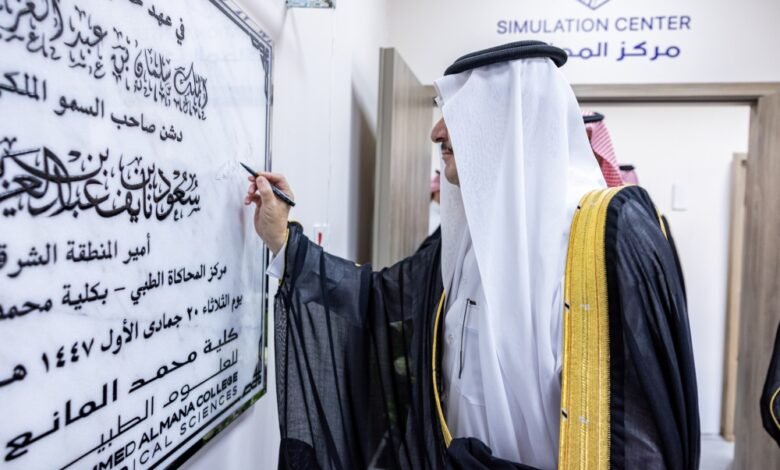 SIMULATION CENTER
مركز الم
في عهد
الملك سلمان بن عبدالعز
دشن صاحب السمو الملك
سعود بن نايف بن عبدالعزي
أمير المنطقة الشرق
مركز المحاكاة الطبي - بكلية محمد
يوم الثلاثاء ٢٠ جمادى الأول ١٤٤٧ هـ
كلية محمد المانع
للعلوم الطبية
MMED ALMANA COLLEGE
DICAL SCIENCES